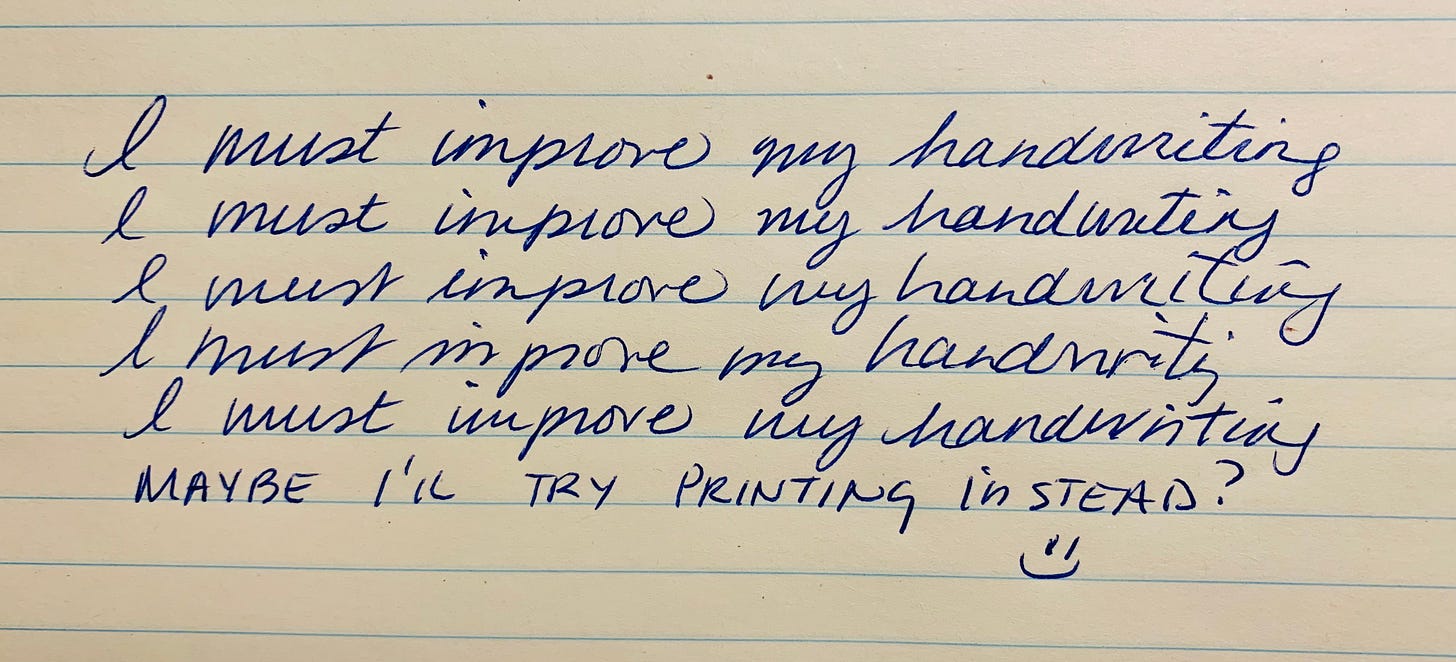 I must improve my handwriting
I must improve my handwriting
I must improve my handwriting
I must improve my handwriting
I must improve my handwriting
MAYBE I'LL TRY PRINTING inSTEAD?